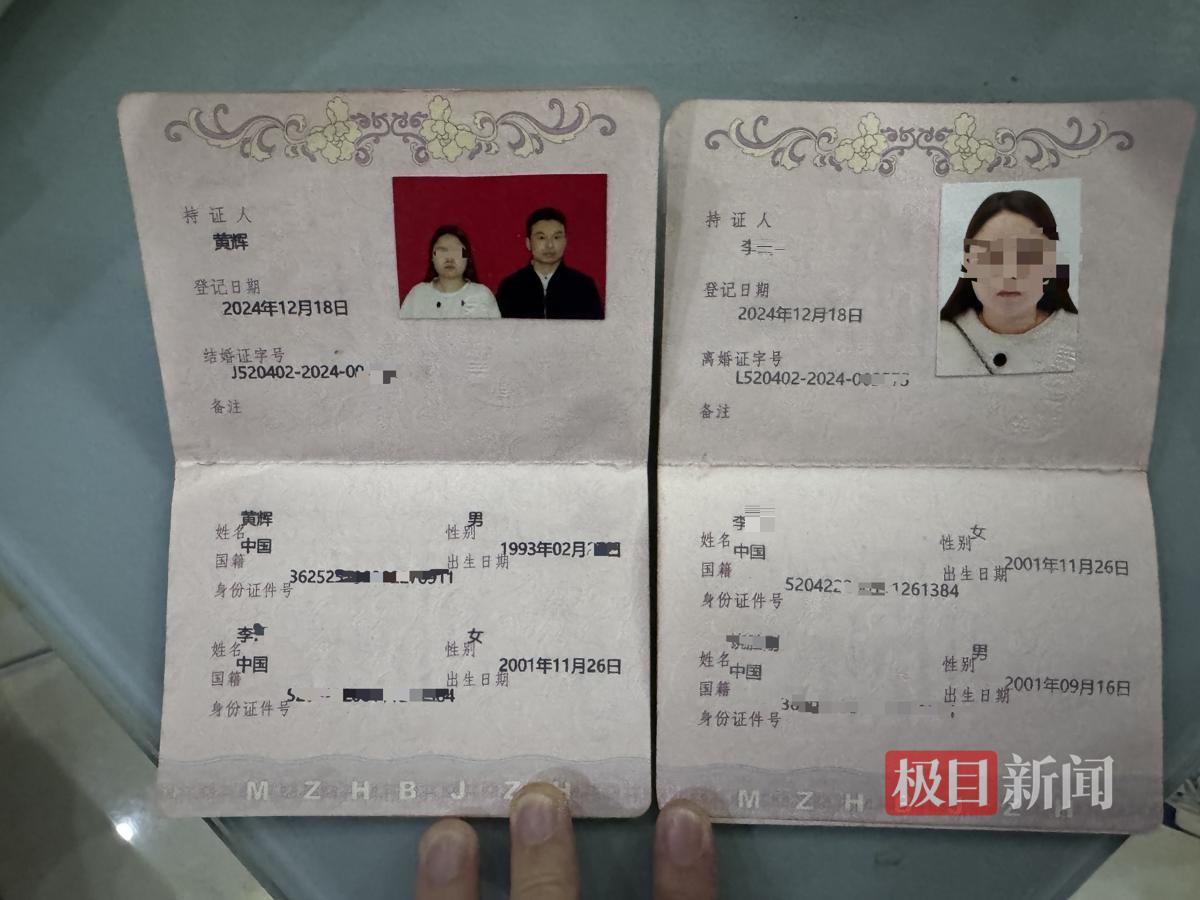 持证人
黄辉
登记日期
2024年12月18日
结婚证字号
J520402-2024-00
备注
姓名 黄辉
性别 男
国籍 中国
出生日期 1993年02月 日
身份证件号 362525
姓名 李
性别 女
国籍 中国
出生日期 2001年11月26日
身份证件号
MZHBJZH
持证人
李
登记日期
2024年12月18日
离婚证字号
L520402-2024-00
备注
姓名 李
性别 女
国籍 中国
出生日期 2001年11月26日
身份证件号 520422 1261384
姓名
性别 男
国籍 中国
出生日期 2001年09月16日
身份证件号 36
MZH ZH
极目新闻